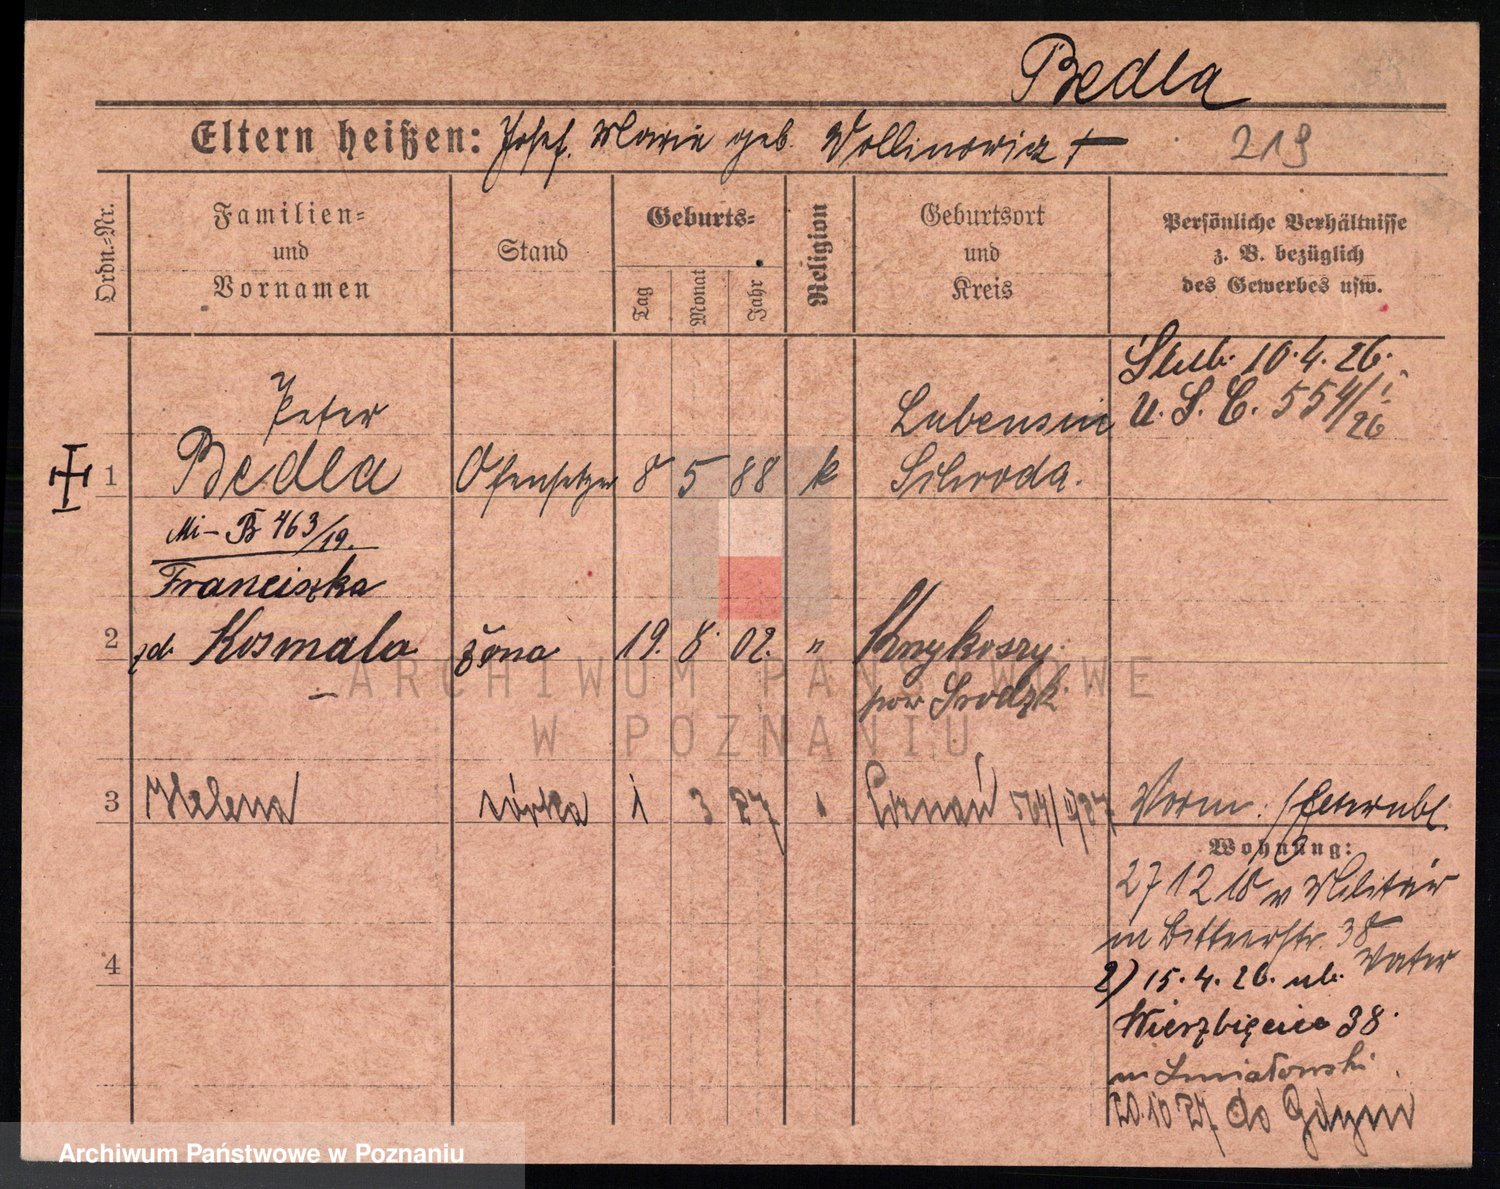 Bedla
Eltern heißen: Josef. Marie geb. Wollinowicz †
219
Ordn.=Nr.
Familien=
und
Vornamen
Stand
Geburts=
Tag
Monat
Jahr
Religion
Geburtsort
und
Kreis
Persönliche Verhältnisse
z. B. bezüglich
des Gewerbes usw.
Ślub. 10.4.26.
U. S. C. 554/I
26
Peter
1 Bedla Ofensetzer 8 5 88 k
Schroda.
Mi- B 463/19.
Franciszka
2 zd. Kosmala żona 19. 8. 02. "
pow Srodzk.
3 Helena córka 1 3 27 Poznań
Vorm.
Wohnung:
27 12 18 v Militär
m Bittnerstr. 38
Vater
4
2) 15.4.26. ul.
Wierzbięcice 38.
20.10.27 do Gdyni
ARCHIWUM PAŃSTWOWE
W POZNANIU
Archiwum Państwowe w Poznaniu